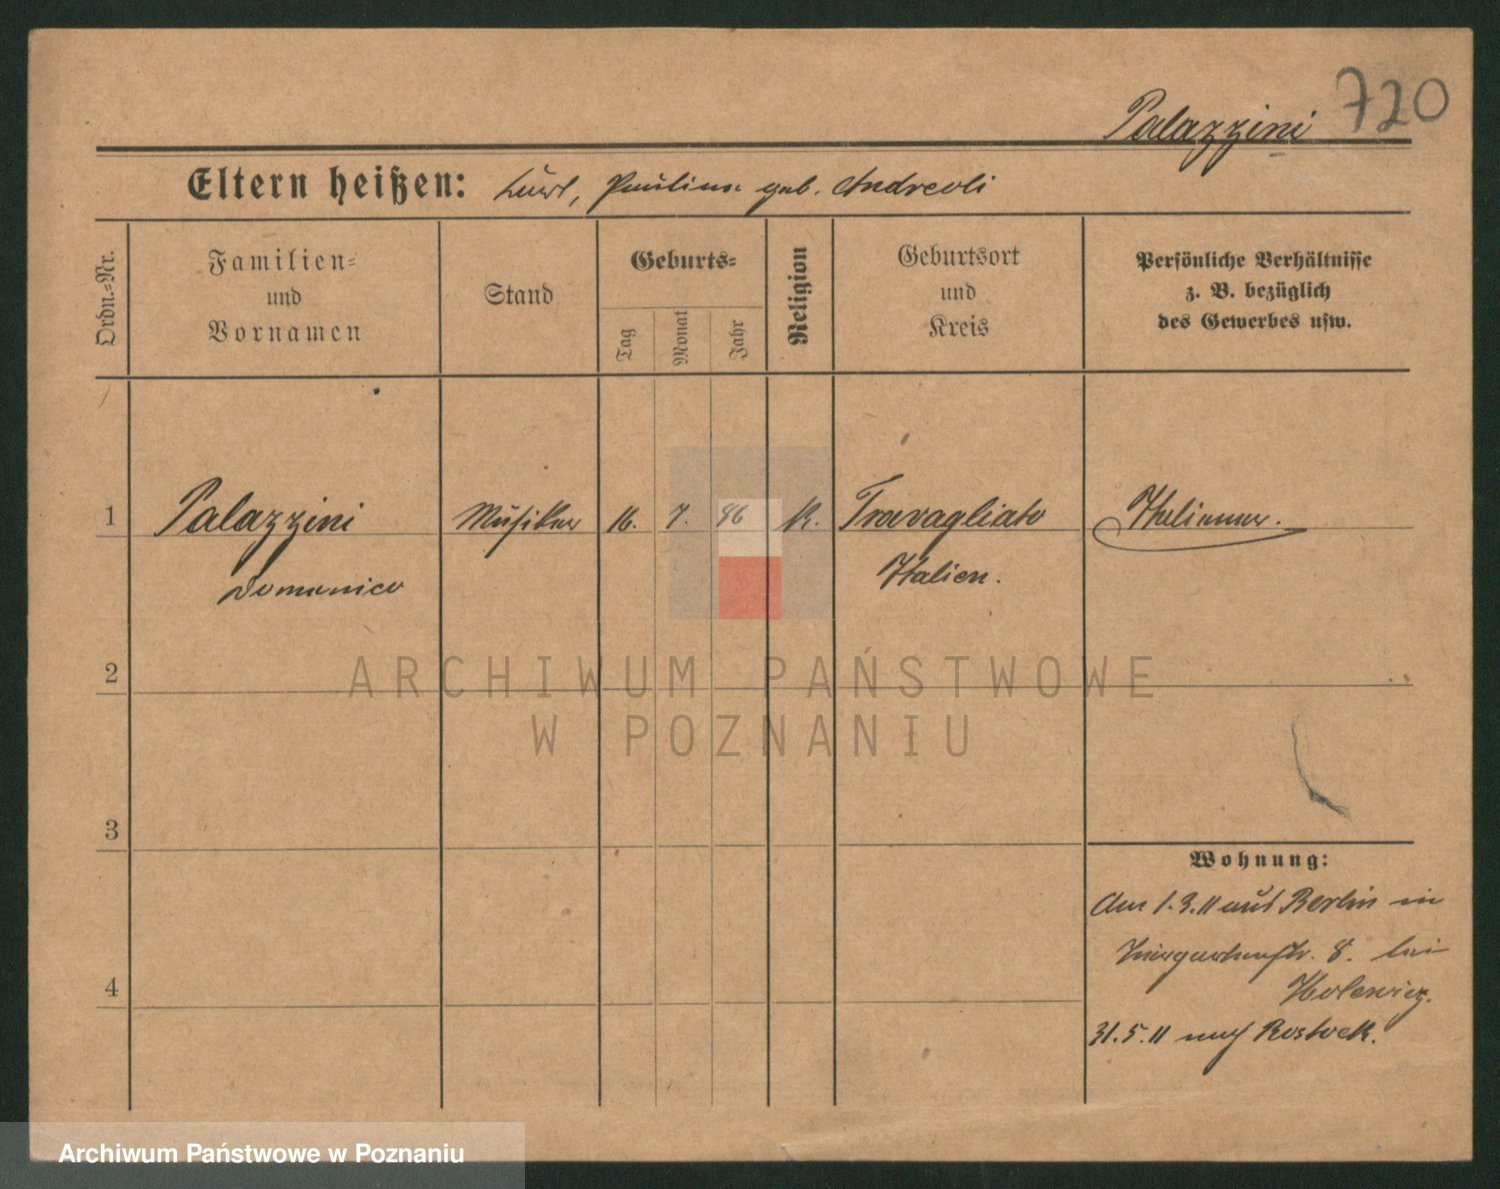 720
Palazzini
Eltern heißen: Karl, Pauline geb. Andreoli
Ordn.-Nr.
Familien-
und
Vornamen
Stand
Geburts-
Tag
Monat
Jahr
Religion
Geburtsort
und
Kreis
Persönliche Verhältnisse
z. B. bezüglich
des Gewerbes usw.
1 Palazzini Musiker 16. 7. 86 K. Travagliato Italiener.
Domenico Italien.
2
3
4
Wohnung:
Am 1.3.11 aus Berlin in
8. bei
31.5.11 nach Rostock.
ARCHIWUM PAŃSTWOWE
W POZNANIU
Archiwum Państwowe w Poznaniu